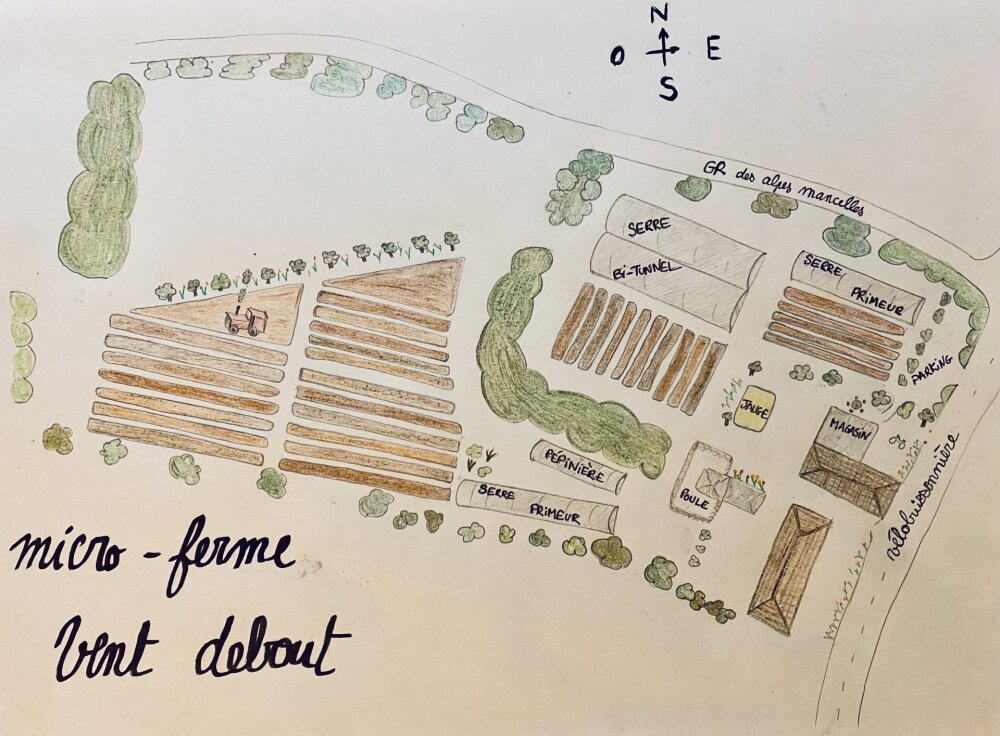 N
O E
S
GR des alpes mancelles
SERRE
Bi-TUNNEL
SERRE
PRiMEUR
PARKING
JAUGE
MAGASIN
PÉPINIÈRE
POULE
SERRE
PRIMEUR
vélobuissonnière
micro-ferme
Vent debout